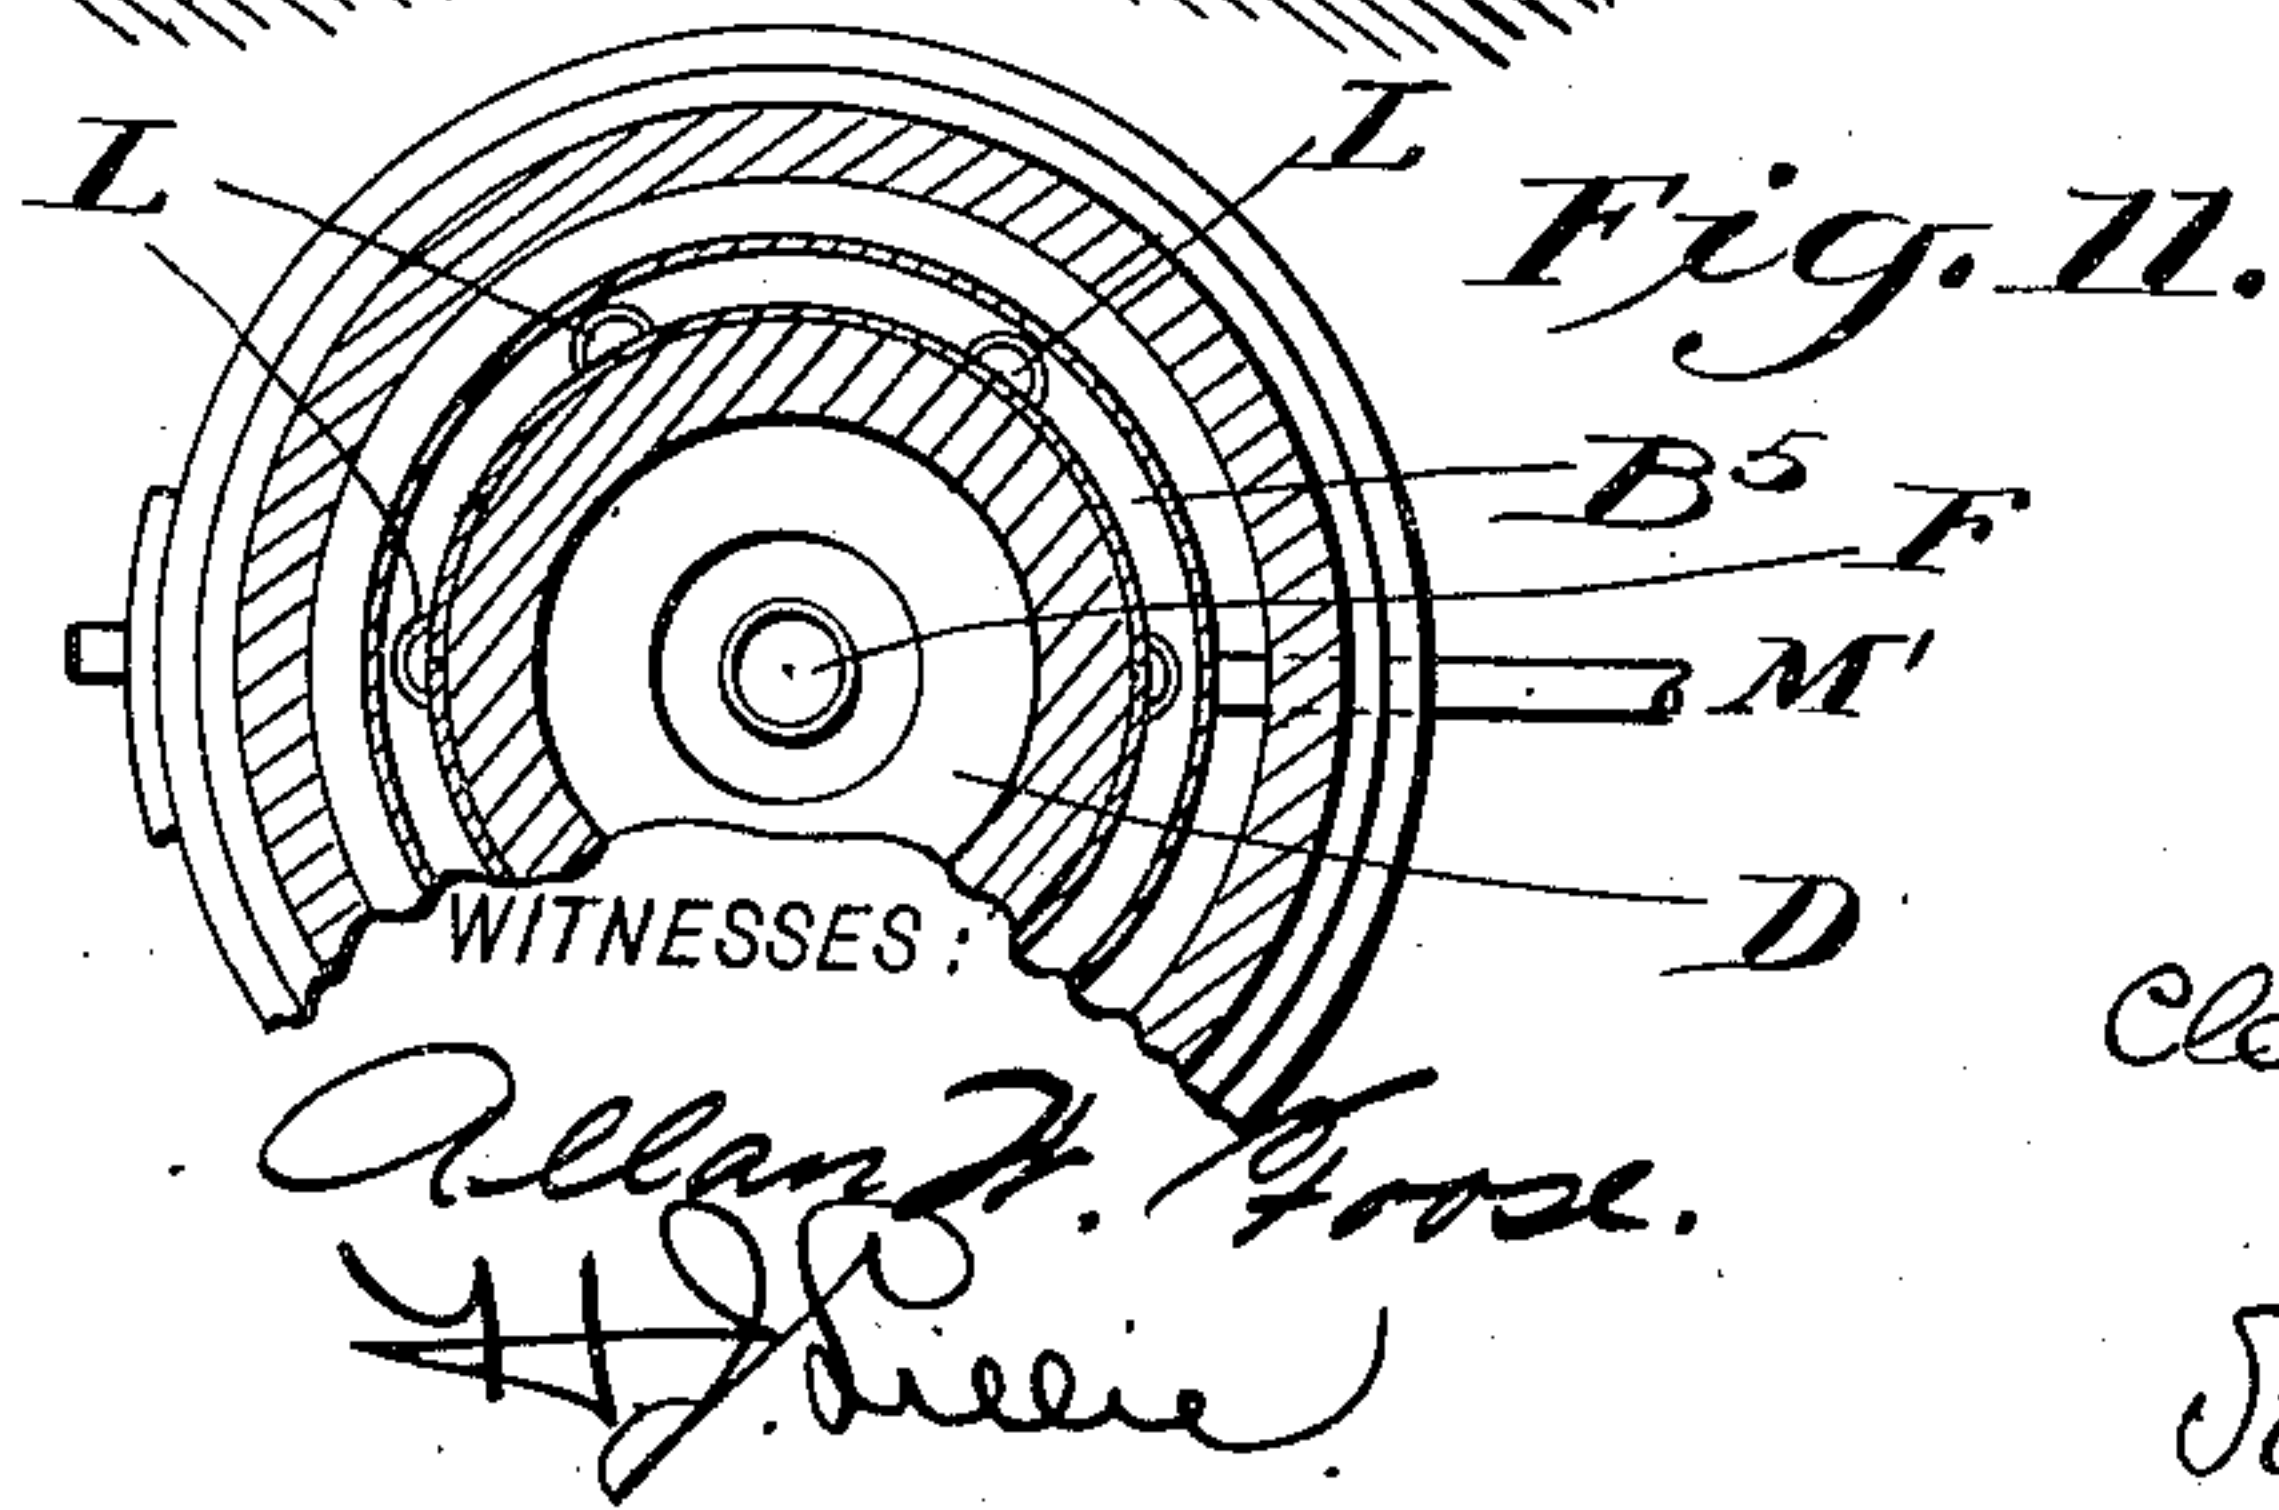 L
L
Fig. 11.
B5
F
M'
D
WITNESSES:
Allan Foose.
Lillie